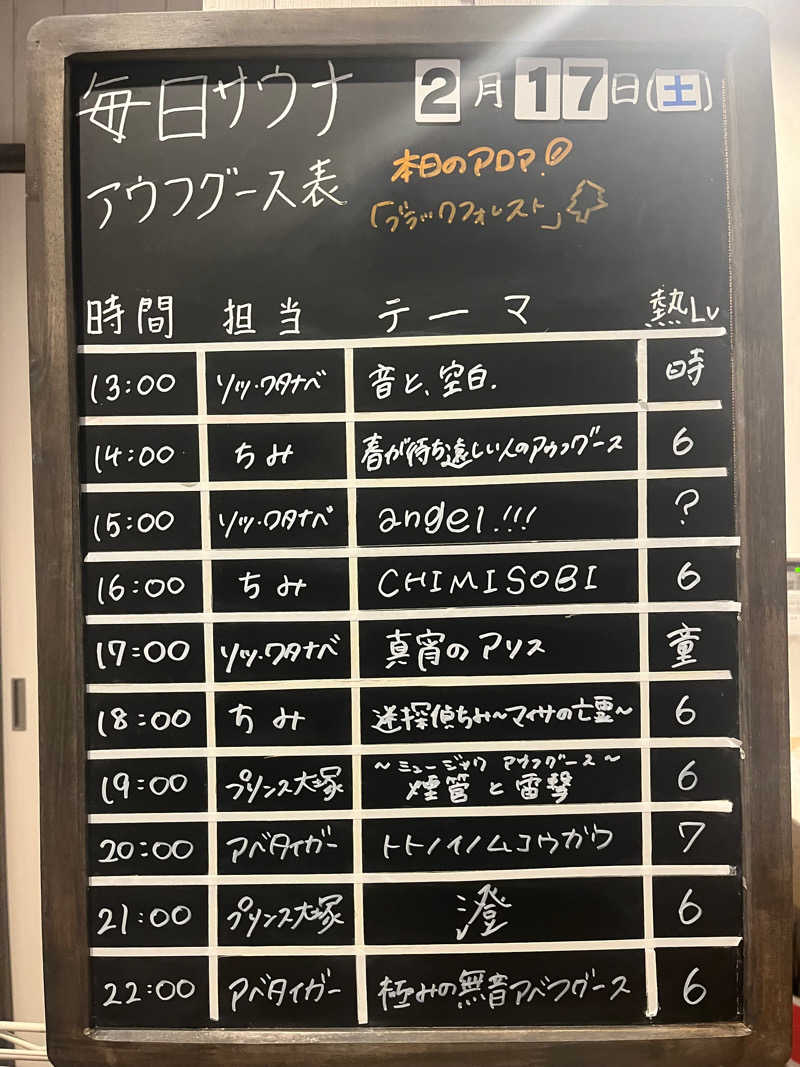 毎日サウナ 2月17日(土)
アウフグース表 本日のアロマ!
「ブラックフォレスト」
時間 担当 テーマ 熱Lv
13:00 ソッ・ワタナベ 音と、空白. 時
14:00 ちみ 春が待ち遠しい人のアウフグース 6
15:00 ソッ・ワタナベ angel.!!! ?
16:00 ちみ CHIMISOBI 6
17:00 ソッ・ワタナベ 真宵のアリス 童
18:00 ちみ 迷探偵ちみ〜マイサの亡霊〜 6
19:00 プリンス大塚 〜ミュージック アウフグース〜 6
煙管と雷撃
20:00 アベタイガー トトノイノムコウガワ 7
21:00 プリンス大塚 澄 6
22:00 アベタイガー 極みの無音アベフグース 6